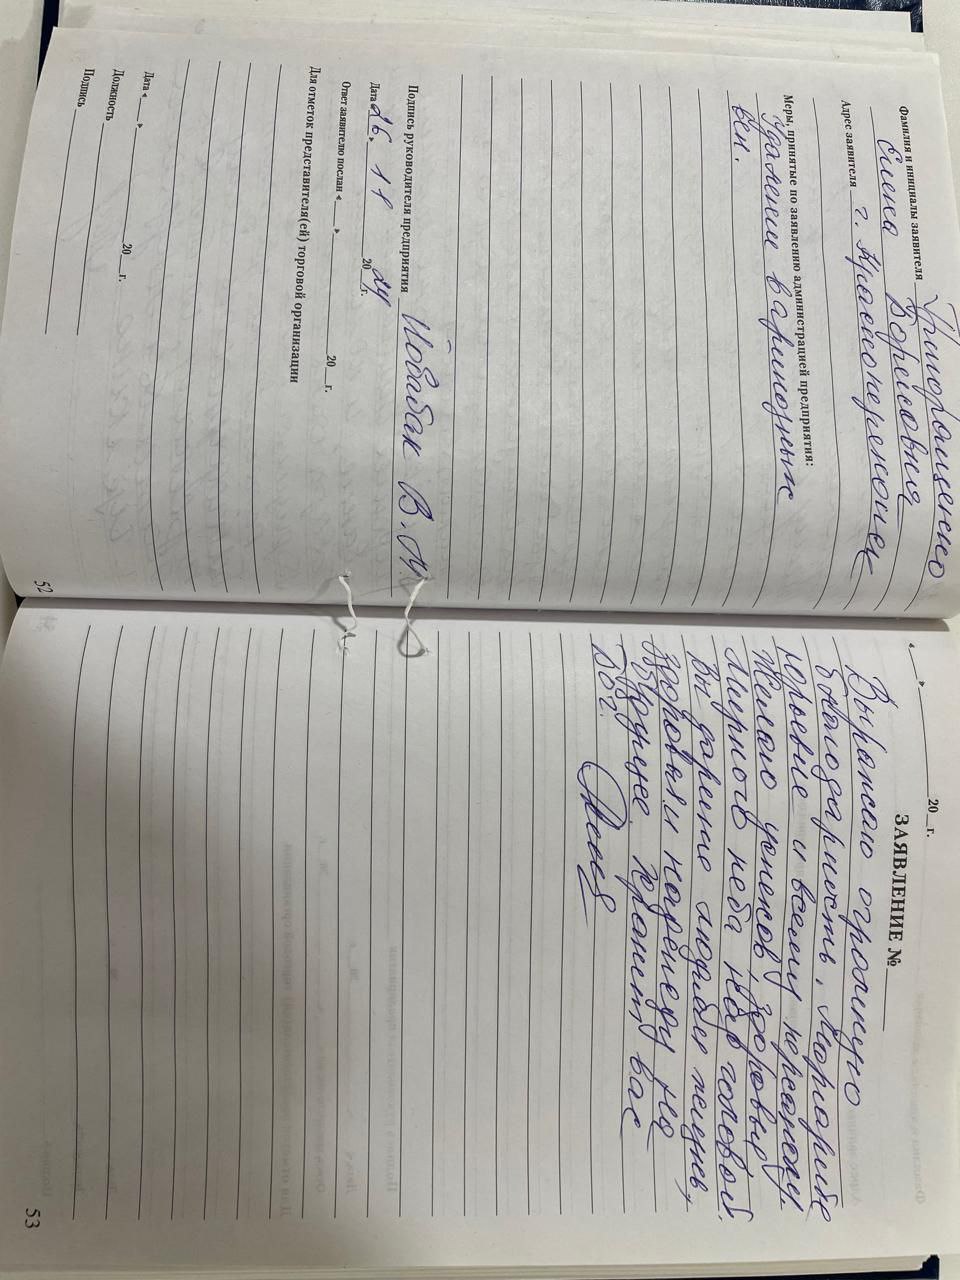 Фамилия и инициалы заявителя Григоращенко
Елена Борисовна
Адрес заявителя г. Красноперекопск
Меры, принятые по заявлению администрацией предприятия:
Удаление варикозных
вен.
Подпись руководителя предприятия Йовбак В. М.
Дата « 26 » 11 20 24 г.
Ответ заявителю послан « » 20 г.
Для отметок представителя(ей) торговой организации
Дата « » 20 г.
Должность
Подпись
52
« » 20 г.
ЗАЯВЛЕНИЕ №
Выражаю огромную
благодарность, Маргарите
Юрьевне и всему персоналу.
Желаю успехов, здоровья
Мирного неба над головой.
Вы дарите людям жизнь,
здоровья и надежду на
будущее. Храни вас
Бог.
53